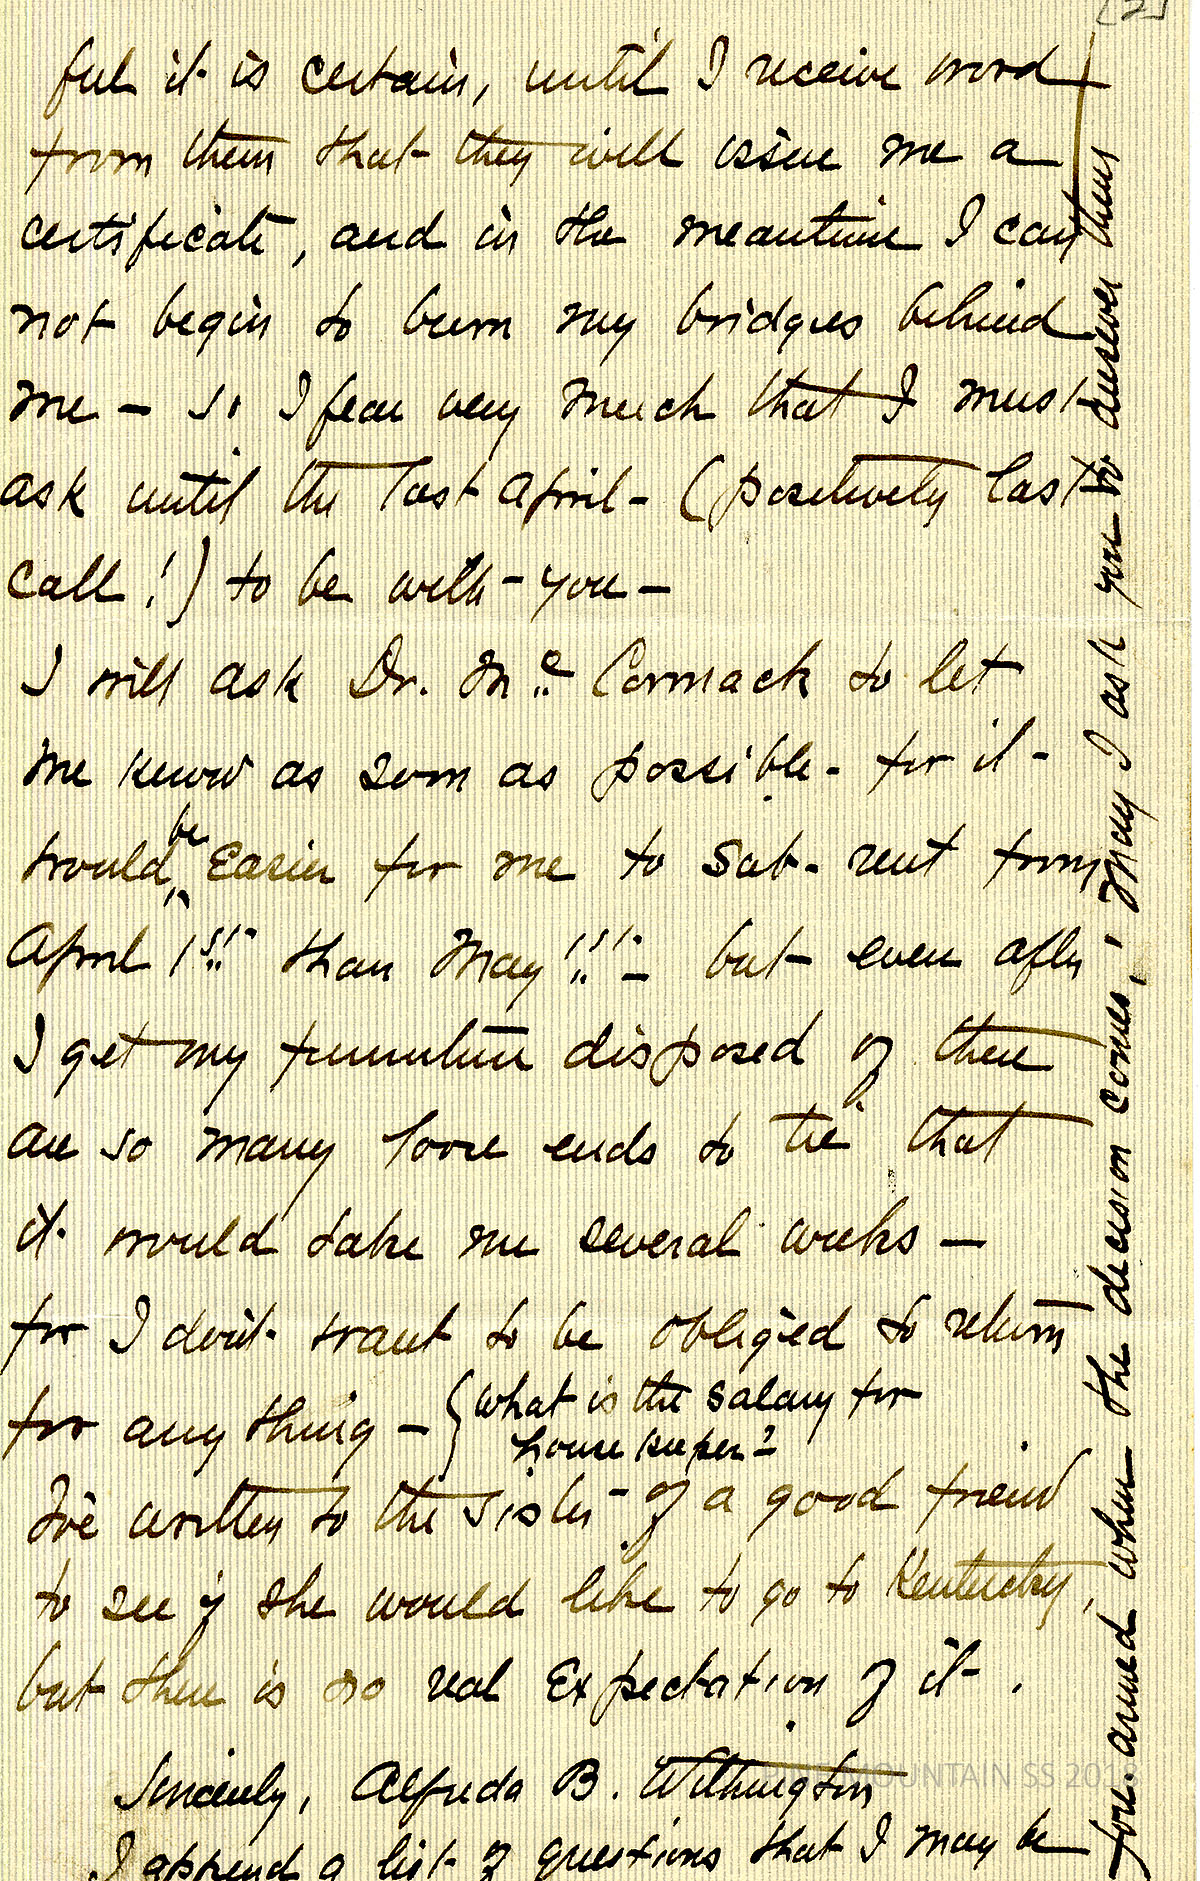 [2]
feel it is certain, until I receive word
from them that they will issue me a
certificate, and in the meantime I can
not begin to burn my bridges behind
me – so I fear very much that I must
ask until the last April – (positively last
call!) to be with you –
I will ask Dr. Mc Cormack to let
me know as soon as possible – for it
would be easier for me to sub-rent from
April 1st than May 1st – but even after
I get my furniture disposed of there
are so many loose ends to tie that
it would take me several weeks –
for I don't want to be obliged to return
for any thing – { What is the salary for
house keeper?
I've written to the sister of a good friend
to see if she would like to go to Kentucky,
but there is no real Expectation of it.
Sincerely, Alfreda B. Withington
I append a list of questions that I may be
fore-armed when the decision comes, – May I ask you to answer them
PINE MOUNTAIN SS 2018